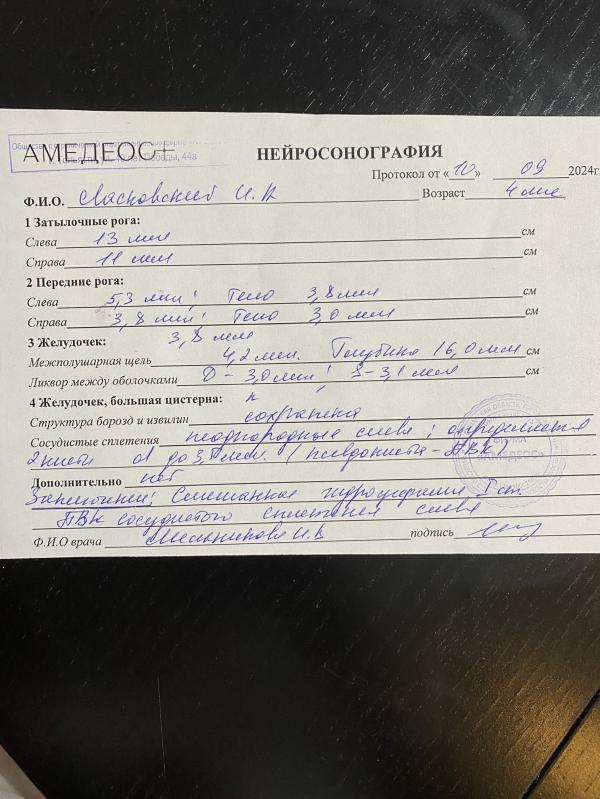 АМЕДЕОС+
НЕЙРОСОНОГРАФИЯ
Протокол от «10» 09 2024г.
Ф.И.О. Ласковский И. Возраст 4 мес
1 Затылочные рога:
Слева 13 мм см
Справа 11 мм см
2 Передние рога:
Слева 5,3 мм; Тело 3,8 мм см
Справа 3,8 мм; Тело 3,0 мм см
3 Желудочек: 3,8 мм
Межполушарная щель 4,2 мм. Глубина 16,0 мм см
Ликвор между оболочками D - 3,0 мм; S - 3,1 мм
4 Желудочек, большая цистерна: N
Структура борозд и извилин сохранена
Сосудистые сплетения неоднородные слева; определяется
2 кисты d до мм. (псевдокисты - ПВК
Дополнительно нет
Заключение: Смешанная гидроцефалия I ст.
ПВК сосудистого сплетения слева
Ф.И.О врача Мельникова И.В подпись